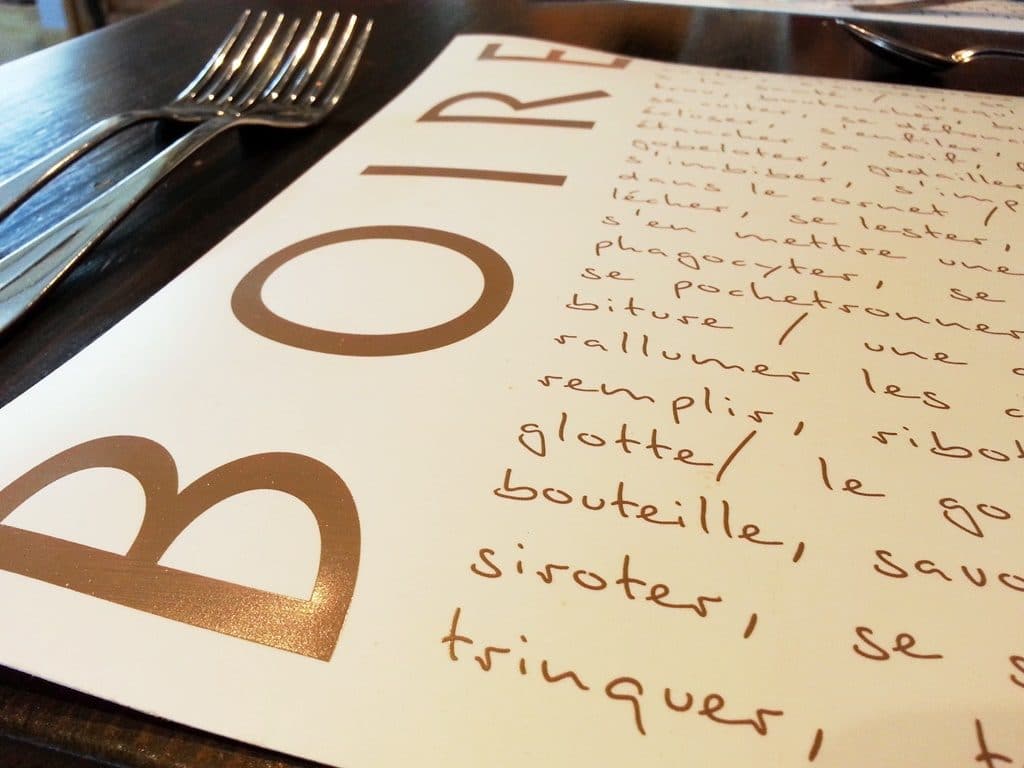 BOIRE
se
étancher sa soif,
gobeloter, godailler
s'imbiber, s'imp
dans le cornet /
lécher, se lester,
s'en mettre une
phagocyter, se
se pochetronner
biture / une
rallumer les
remplir, ribo
glotte / le go
bouteille, savo
siroter, se s
trinquer, t